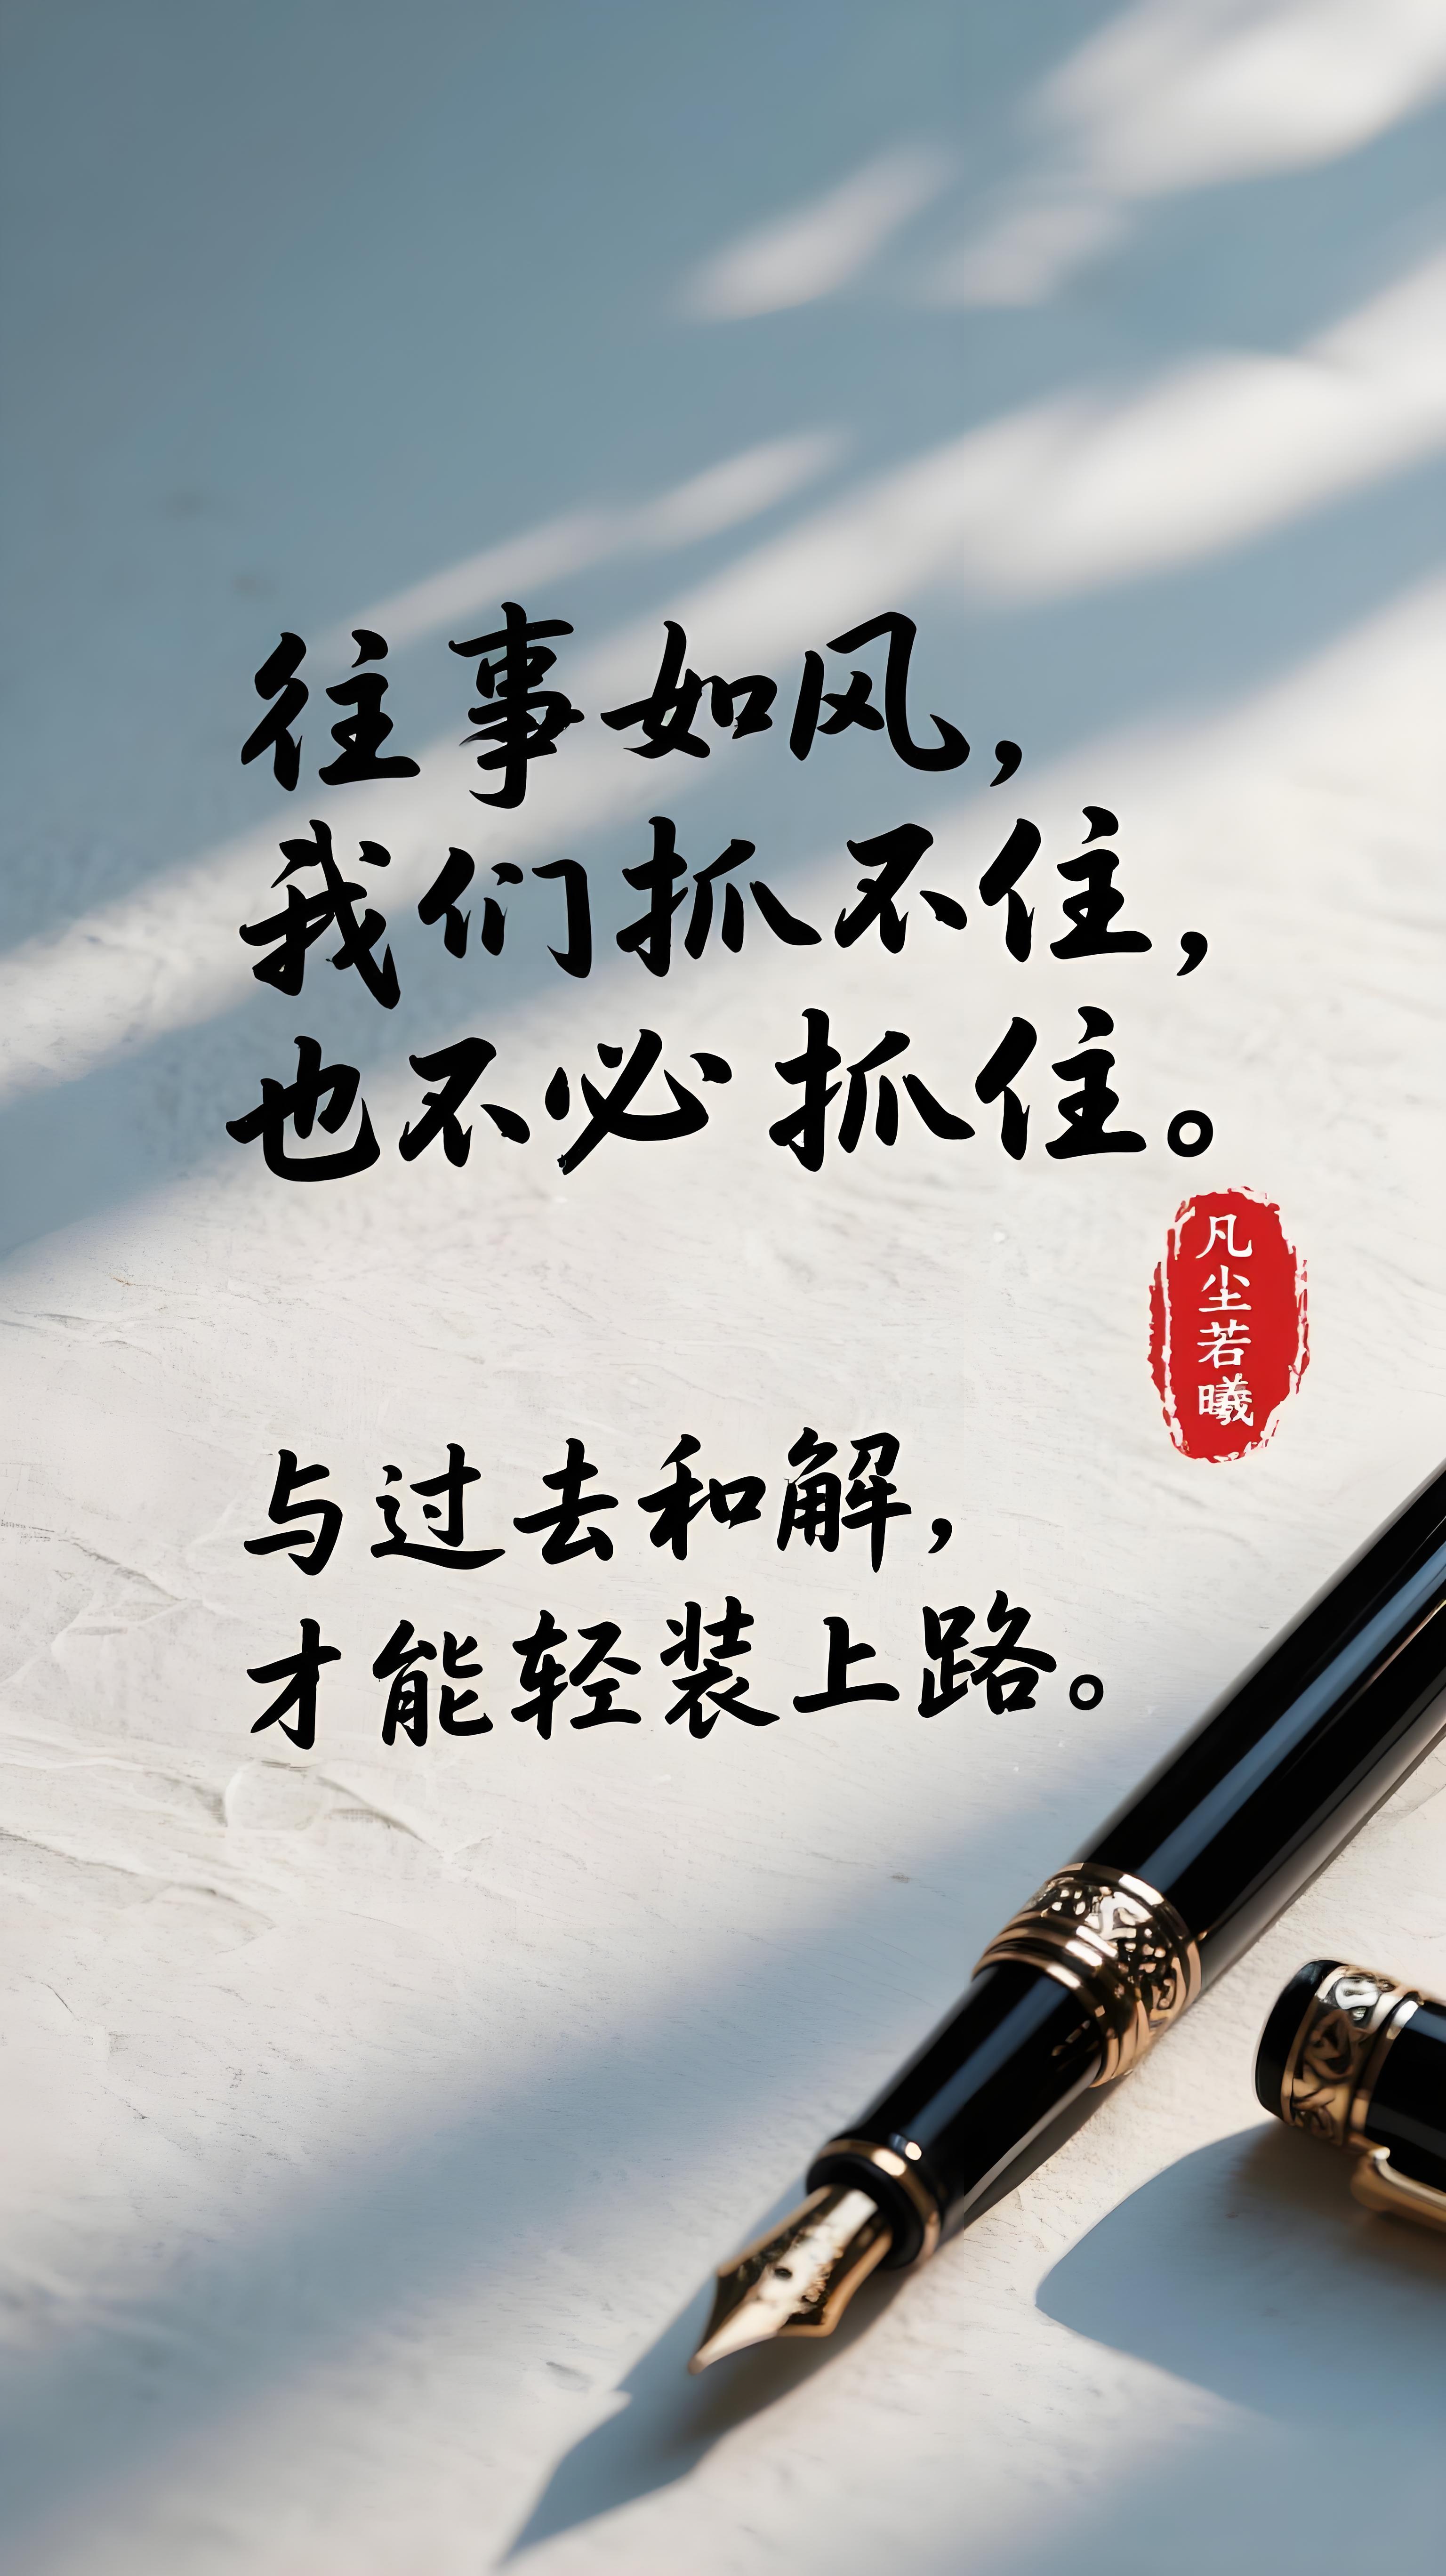 往事如风，
我们抓不住，
也不必抓住。
凡尘若曦
与过去和解，
才能轻装上路。